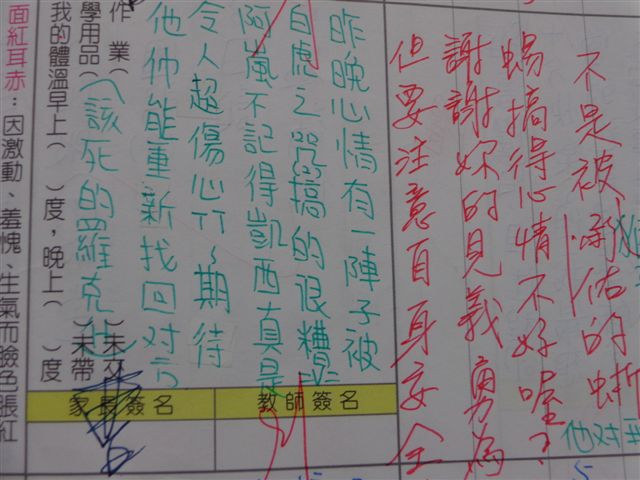 不是被
佑的蜥
蜴搞得心情不好喔?
謝謝妳的見義勇為
但要注意自身安全
他对
昨晚心情有一陣子被
白虎之咒搞的很糟
阿嵐不記得凱西真是
令人超傷心ㄇㄇ~期待
他们能重新找回对方
(該死的羅克
作業( )未交
學用品( )未帶
我的體溫早上( )度,晚上( )度
教師簽名
家長簽名
面紅耳赤:因激動、羞愧、生氣而臉色漲紅